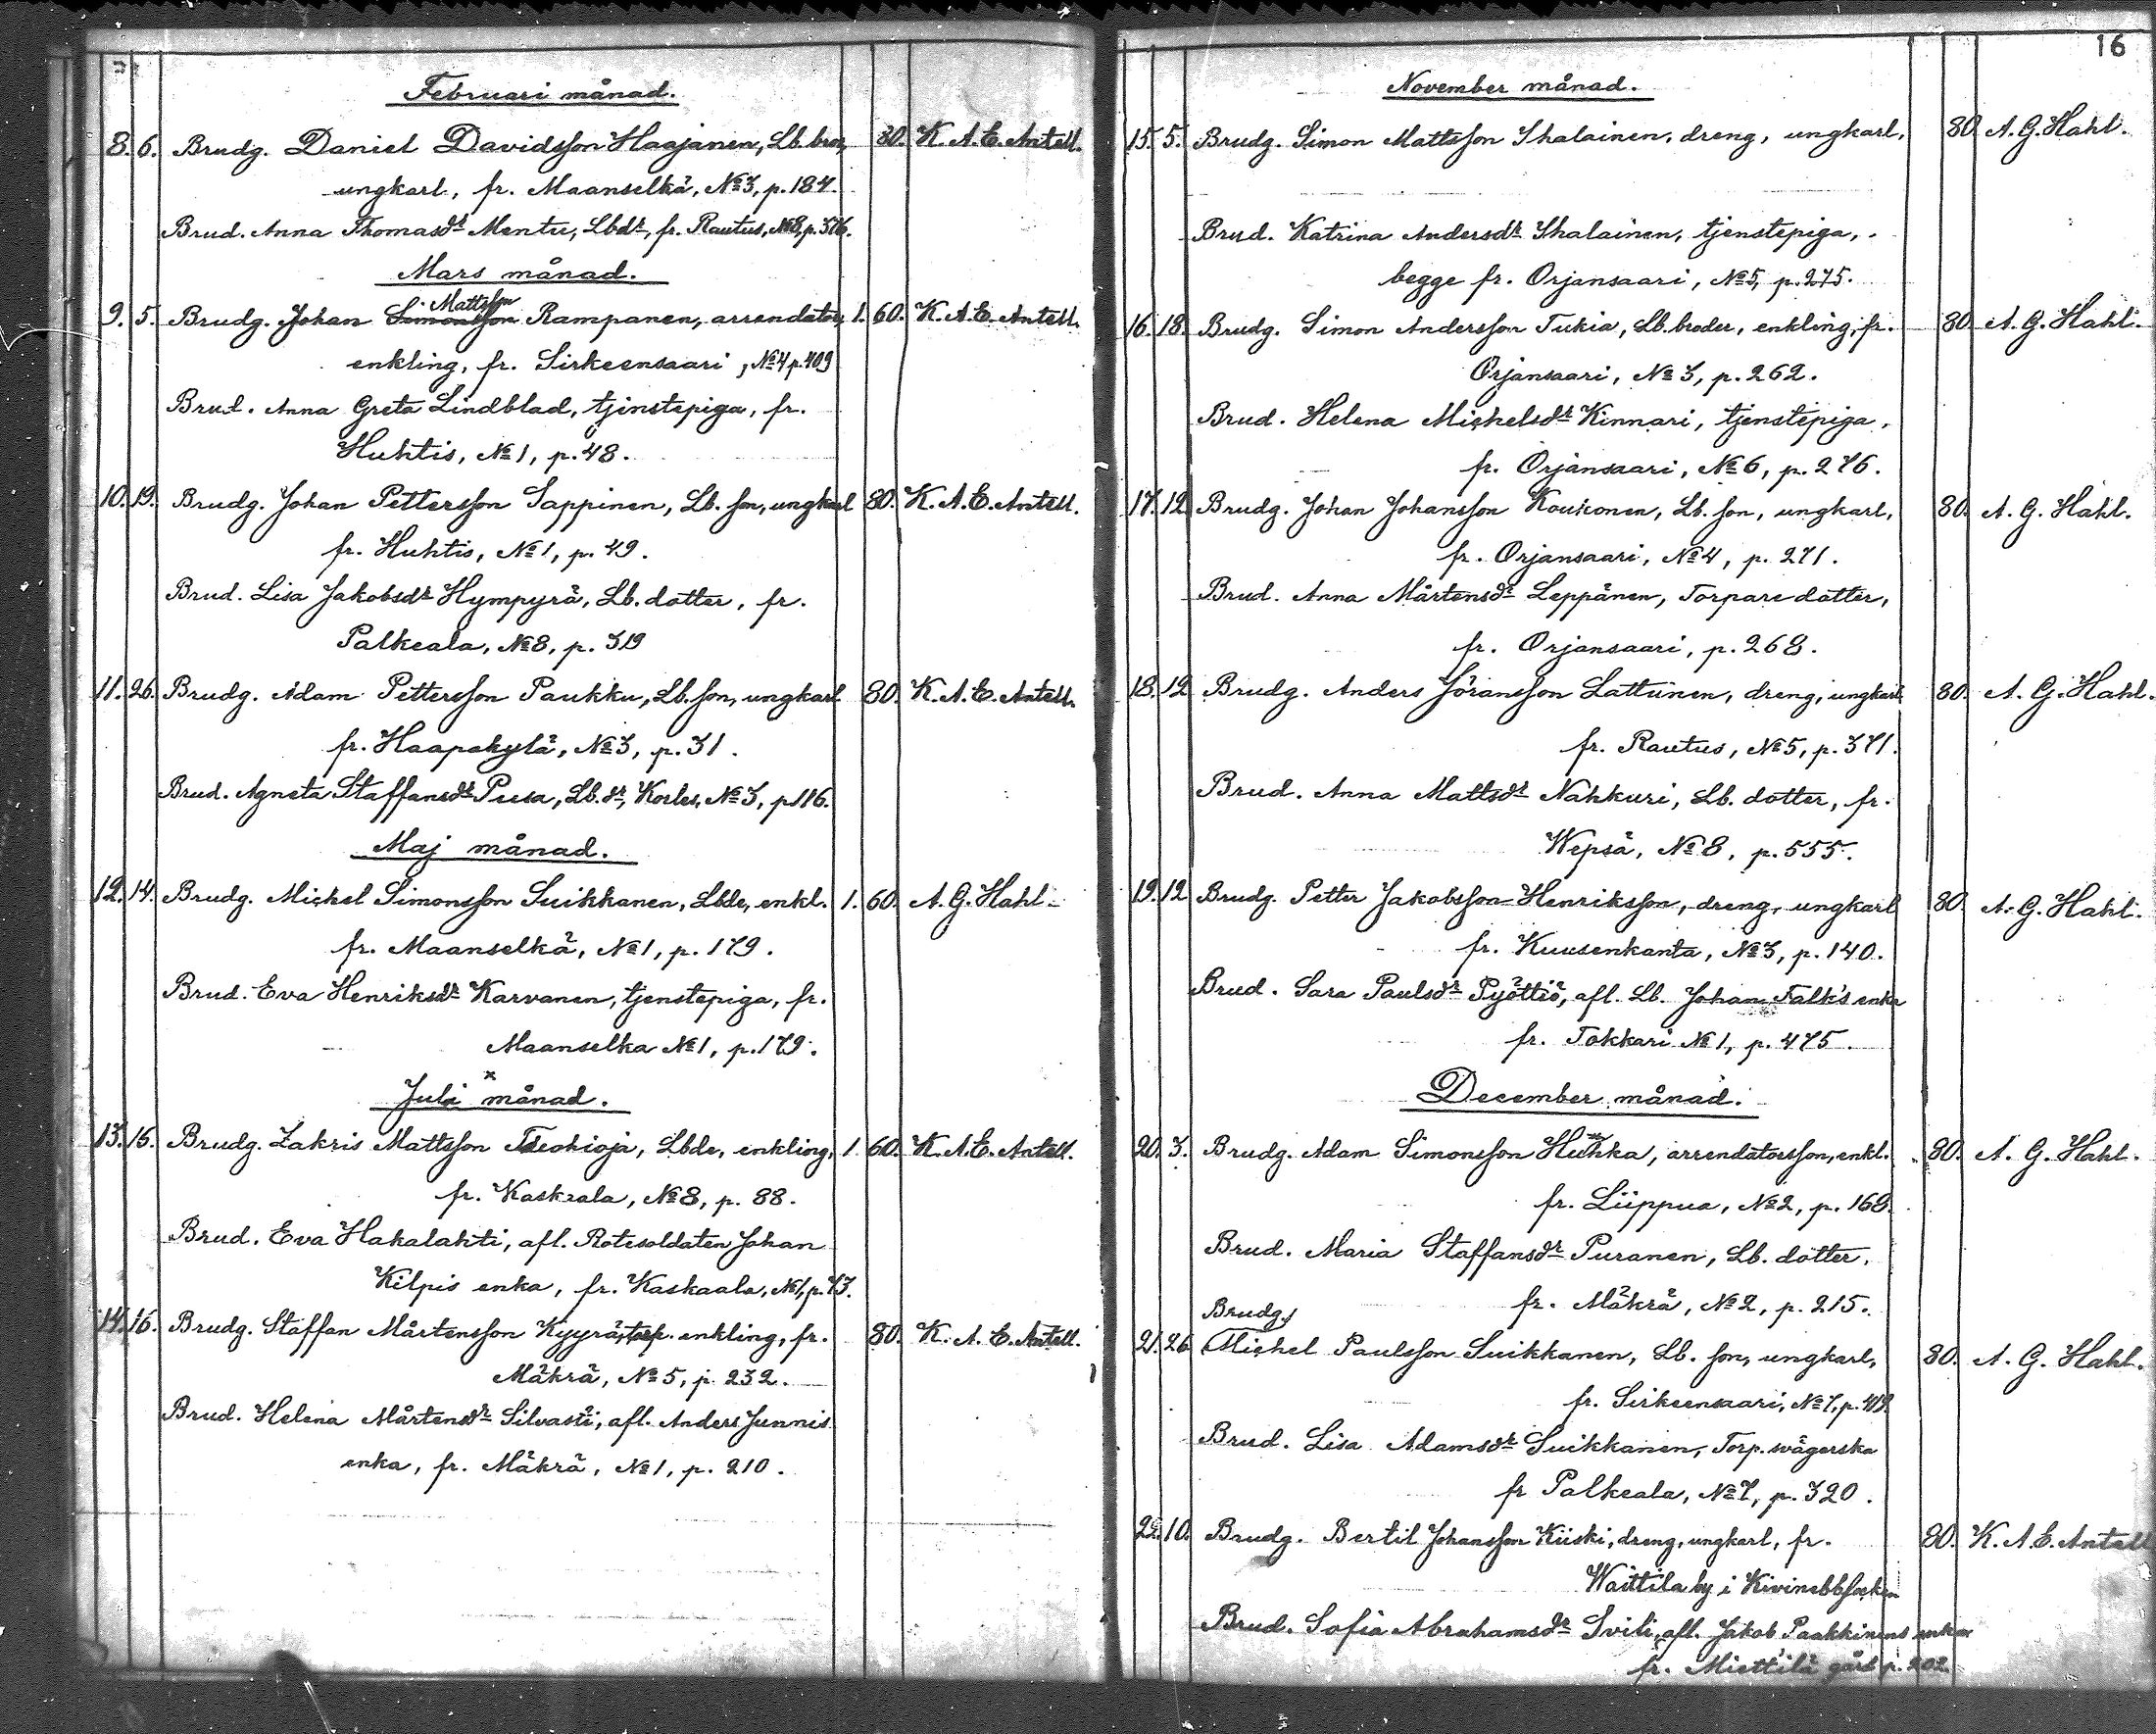 Februari månad.
8. 6. Brudg. Daniel Davidsson Haajanen, Lb. bror, 80. K. A. E. Antell.
ungkarl, fr. Maanselkä, № 3, p. 184.
Brud. Anna Thomasdr Mentu, Lbdr, fr. Rautus, № 8, p. 376.
Mars månad.
Mattsson
9. 5. Brudg. Johan Simonsson Rampanen, arrendator, 1. 60. K. A. E. Antell.
enkling, fr. Sirkeensaari, № 4 p. 409
Brud. Anna Greta Lindblad, tjenstepiga, fr.
Huhtis, № 1, p. 48.
10. 19. Brudg. Johan Pettersson Sappinen, Lb. son, ungkarl 80. K. A. E. Antell.
fr. Huhtis, № 1, p. 49.
Brud. Lisa Jakobsdr Hympyrä, Lb. dotter, fr.
Palkeala, № 8, p. 319
11. 26. Brudg. Adam Pettersson Paukku, Lb. son, ungkarl 80. K. A. E. Antell.
fr. Haapakylä, № 3, p. 31.
Brud. Agneta Staffansdr Pusa, Lb. dr, Korles, № 3, p 116.
Maj månad.
12. 14. Brudg. Mickel Simonsson Suikkanen, Lbde, enkl. 1. 60. A. G. Hahl.
fr. Maanselkä, № 1, p. 179.
Brud. Eva Henriksdr Karvanen, tjenstepiga, fr.
Maanselka № 1, p. 179.
x
Juli månad.
13. 15. Brudg. Zakris Mattsson Teohioja, Lbde, enkling, 1 60. K. A. E. Antell.
fr. Kaskaala, № 8, p. 88.
Brud. Eva Hakalahti, afl. Rotesoldaten Johan
Kilpis enka, fr. Kaskaala, № 1, p. 73.
14. 16. Brudg. Staffan Mårtensson Kyyrä, torp. enkling, fr. 80. K. A. E. Antell.
Mäkrä, № 5, p. 232.
Brud. Helena Mårtensdr Silvasti, afl. Anders Junnis
enka, fr. Mäkrä, № 1, p. 210.
16
November månad.
15. 5. Brudg. Simon Mattsson Ihalainen, dreng, ungkarl, 80 A. G. Hahl.
Brud. Katrina Andersdr Ihalainen, tjenstepiga,
begge fr. Orjansaari, № 5, p. 275.
16. 18. Brudg. Simon Andersson Tukia, Lb. broder, enkling, fr. 80 A. G. Hahl.
Orjansaari, № 3, p. 262.
Brud. Helena Mickelsdr Kinnari, tjenstepiga,
fr. Orjansaari, № 6, p. 276.
17. 12 Brudg. Johan Johansson Koukonen, Lb. son, ungkarl, 80. A. G. Hahl.
fr. Orjansaari, № 4, p. 271.
Brud. Anna Mårtensdr Leppänen, Torpare dotter,
fr. Orjansaari, p. 268.
18. 12 Brudg. Anders Jöransson Lattunen, dreng, ungkarl 80. A. G. Hahl.
fr. Rautus, № 5, p. 371.
Brud. Anna Mattsdr Nahkuri, Lb. dotter, fr.
Wepsä, № 8, p. 555.
19. 12 Brudg. Petter Jakobsson Henriksson, dreng, ungkarl 80. A. G. Hahl.
fr. Kuusenkanta, № 3, p. 140.
Brud. Sara Paulsdr Pyöttiö, afl. Lb. Johan Falk's enka
fr. Tokkari № 1, p. 475.
December månad.
20. 3. Brudg. Adam Simonsson Huhka, arrendatorsson, enkl. 80. A. G. Hahl.
fr. Liippua, № 2, p. 168.
Brud. Maria Staffansdr Puranen, Lb. dotter,
fr. Mäkrä, № 2, p. 215.
Brudg.
21. 26 Michel Paulsson Suikkanen, Lb. son, ungkarl, 80. A. G. Hahl.
fr. Sirkeensaari, № 7, p. 419.
Brud. Lisa Adamsdr Suikkanen, Torp. svägerska
fr Palkeala, № 7, p. 320.
22. 10. Brudg. Bertil Johansson Kiiski, dreng, ungkarl, fr. 80. K. A. E. Antell
Waittila by i Kivinebb socken
Brud. Sofia Abrahamsdr Svili, afl. Jakob Paakkinens enka
fr. Miettilä gård p. 202.